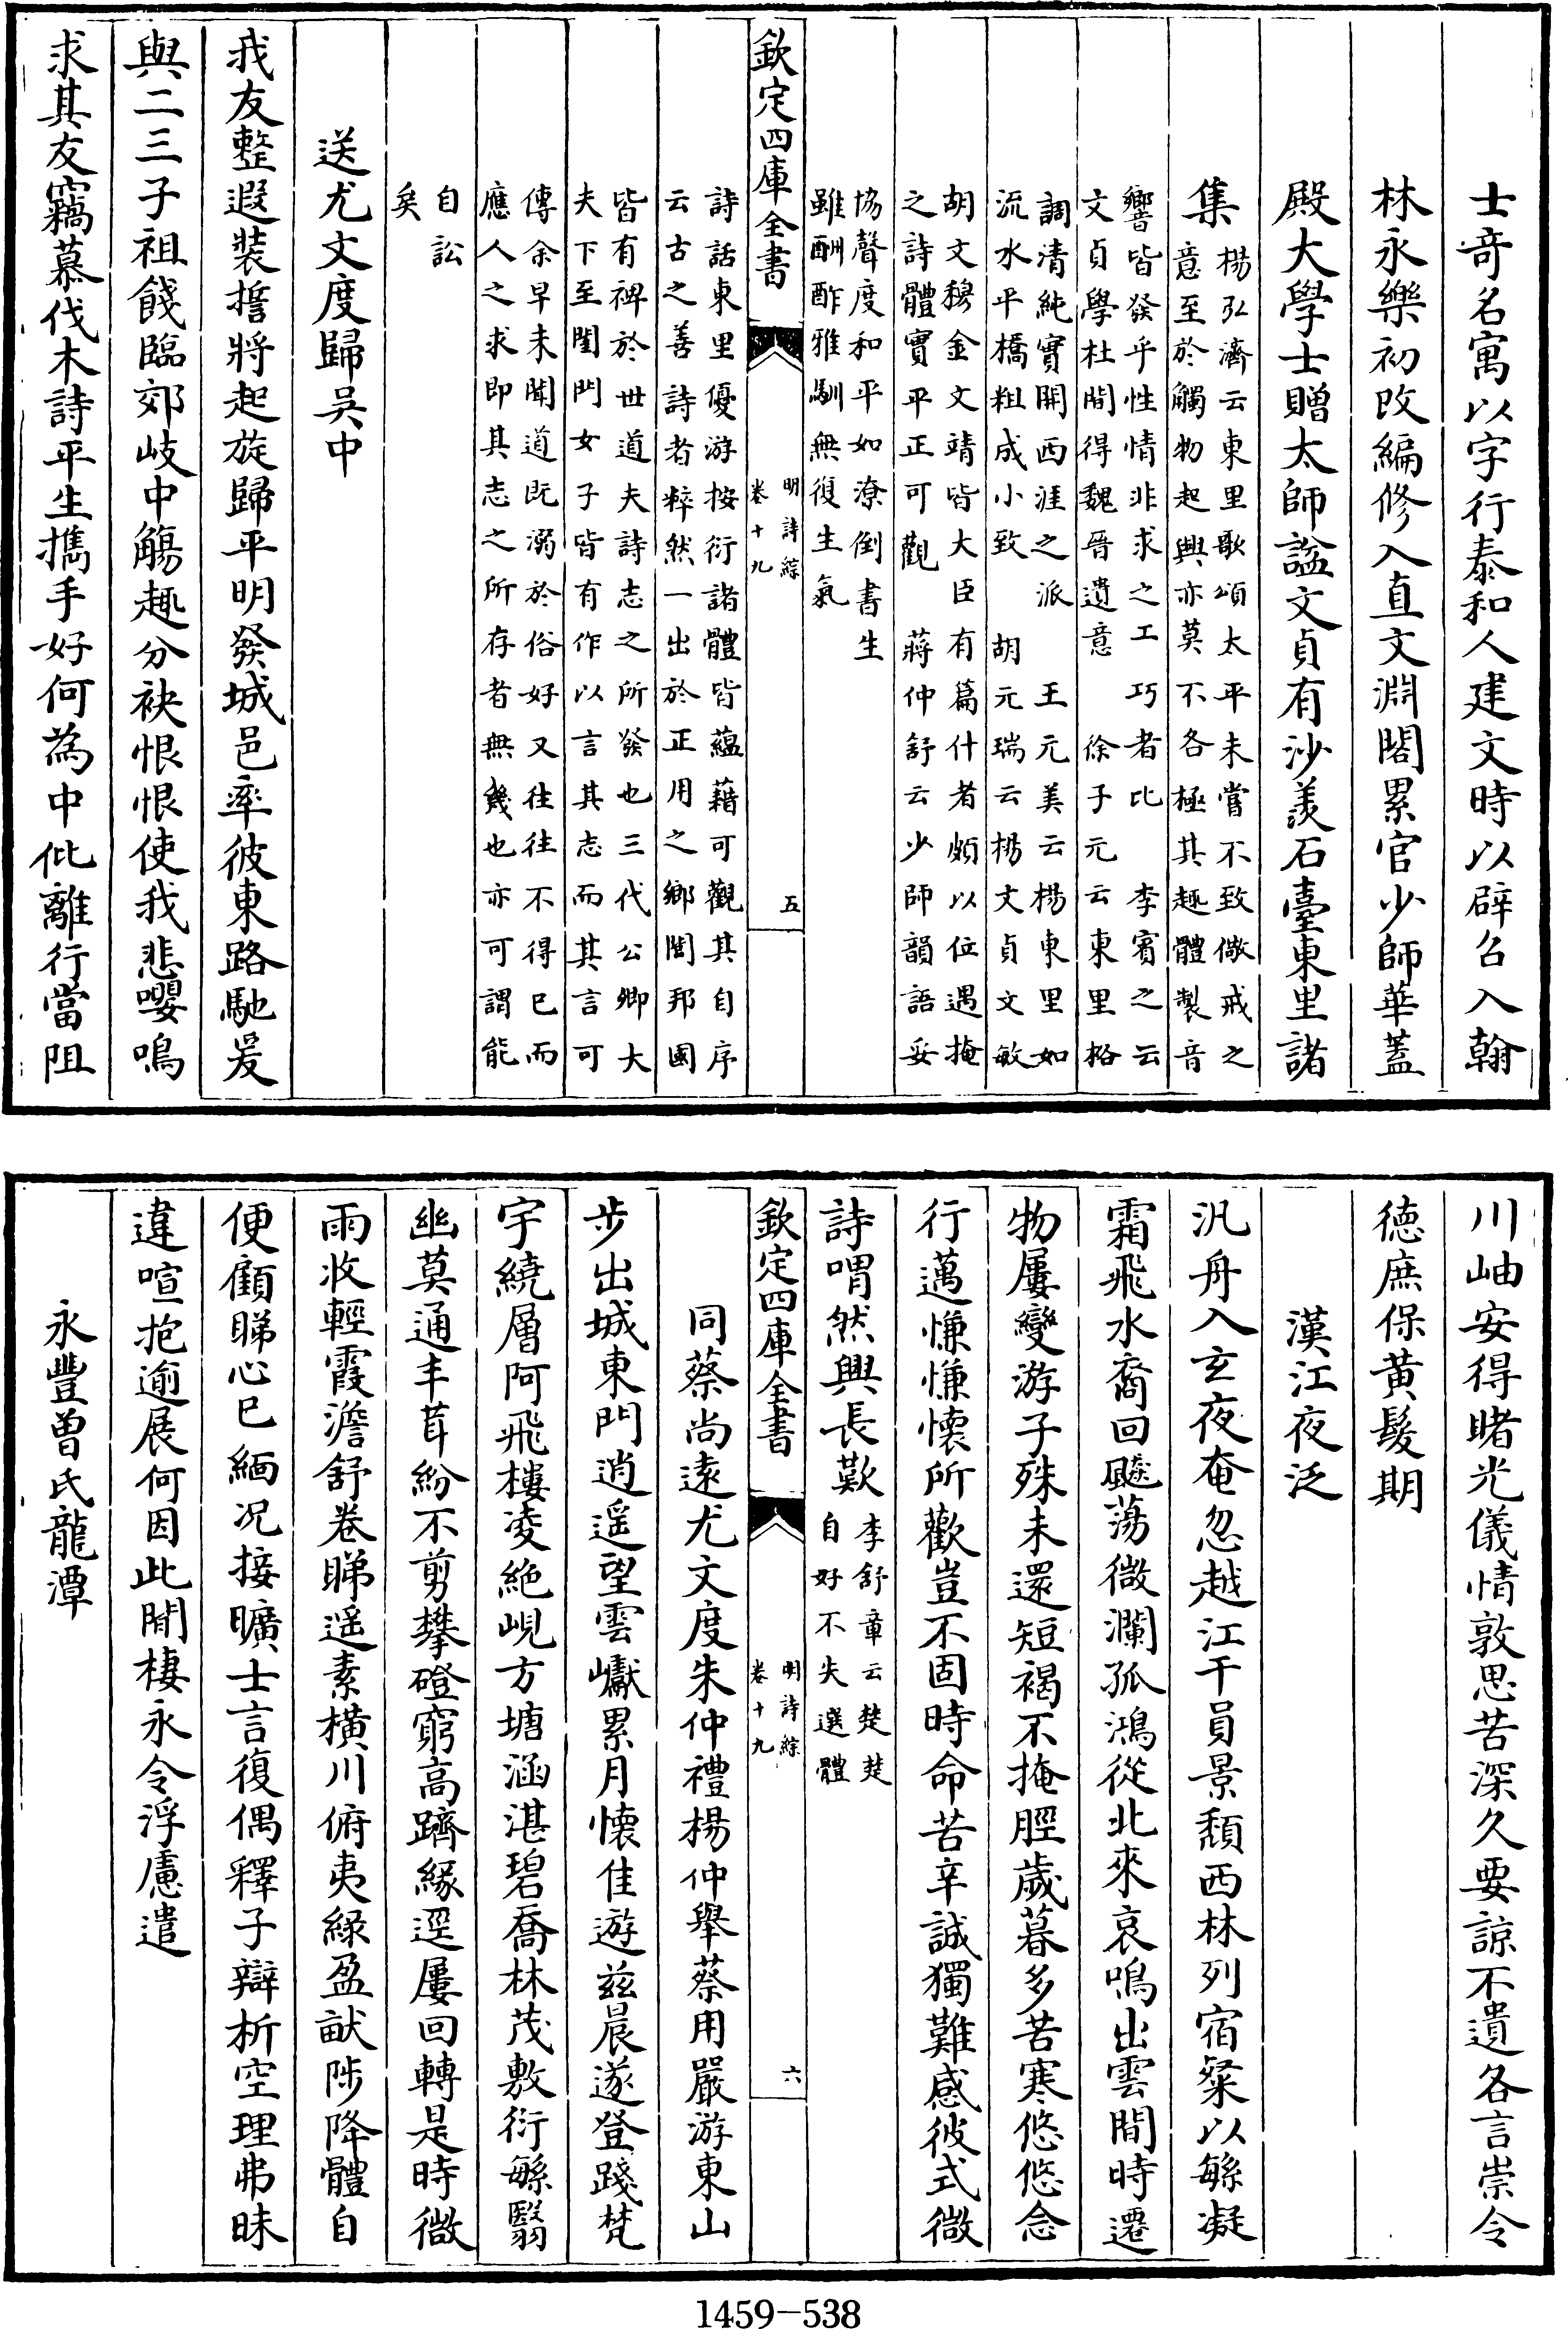 士奇名寓以字行泰和人建文時以辟召入翰
林永樂初改編修入直文淵閣累官少師華蓋
殿大學士贈太師諡文貞有沙羨石臺東里諸
集
楊弘濟云東里歌頌太平未嘗不致儆戒之
意至於觸物起興亦莫不各極其趣體製音
響皆發乎性情非求之工巧者比 李賓之云
文貞學杜間得魏晉遺意 徐子元云東里格
調清純實開西涯之派 王元美云楊東里如
流水平橋粗成小致 胡元瑞云楊文貞文敏
胡文穆金文靖皆大臣有篇什者頗以位遇掩
之詩體實平正可觀 蔣仲舒云少師韻語妥
協聲度和平如潦倒書生
雖酬酢雅馴無復生氣
欽定四庫全書
明詩綜
卷十九
五
詩話東里優游按衍諸體皆蘊藉可觀其自序
云古之善詩者粹然一出於正用之鄉閭邦國
皆有裨於世道夫詩志之所發也三代公卿大
夫下至閨門女子皆有作以言其志而其言可
傳余早未聞道既溺於俗好又往往不得已而
應人之求即其志之所存者無幾也亦可謂能
自訟
矣
送尤文度歸吳中
我友整遐裝誓將起旋歸平明發城邑率彼東路馳爰
與二三子祖餞臨郊岐中觴趣分袂悢悢使我悲嚶鳴
求其友竊慕伐木詩平生擕手好何為中仳離行當阻
川岫安得睹光儀情敦思苦深久要諒不遺各言崇令
德庶保黃髮期
漢江夜泛
汎舟入玄夜奄忽越江干員景頹西林列宿粲以繁凝
霜飛水裔回飈蕩微瀾孤鴻從北來哀鳴出雲間時遷
物屢變游子殊未還短褐不掩脛歲暮多苦寒悠悠念
行邁慊慊懷所歡豈不固時命苦辛誠獨難感彼式微
詩喟然興長歎
李舒章云楚楚
自好不失選體
欽定四庫全書
明詩綜
卷十九
六
同蔡尚遠尤文度朱仲禮楊仲舉蔡用嚴游東山
步出城東門逍遥遥望雲巘累月懷佳遊兹晨遂登踐梵
宇繞層阿飛樓凌絶峴方塘涵湛碧喬林茂敷衍繁翳
幽莫通丰茸紛不剪攀磴窮高躋緣逕屢回轉是時微
雨收輕霞澹舒卷睇遥素橫川俯夷綠盈畎陟降體自
便顧睇心已緬况接曠士言復偶釋子辯析空理弗昧
違喧抱逾展何因此閒棲永令浮慮遣
永豐曾氏龍潭
1459-538